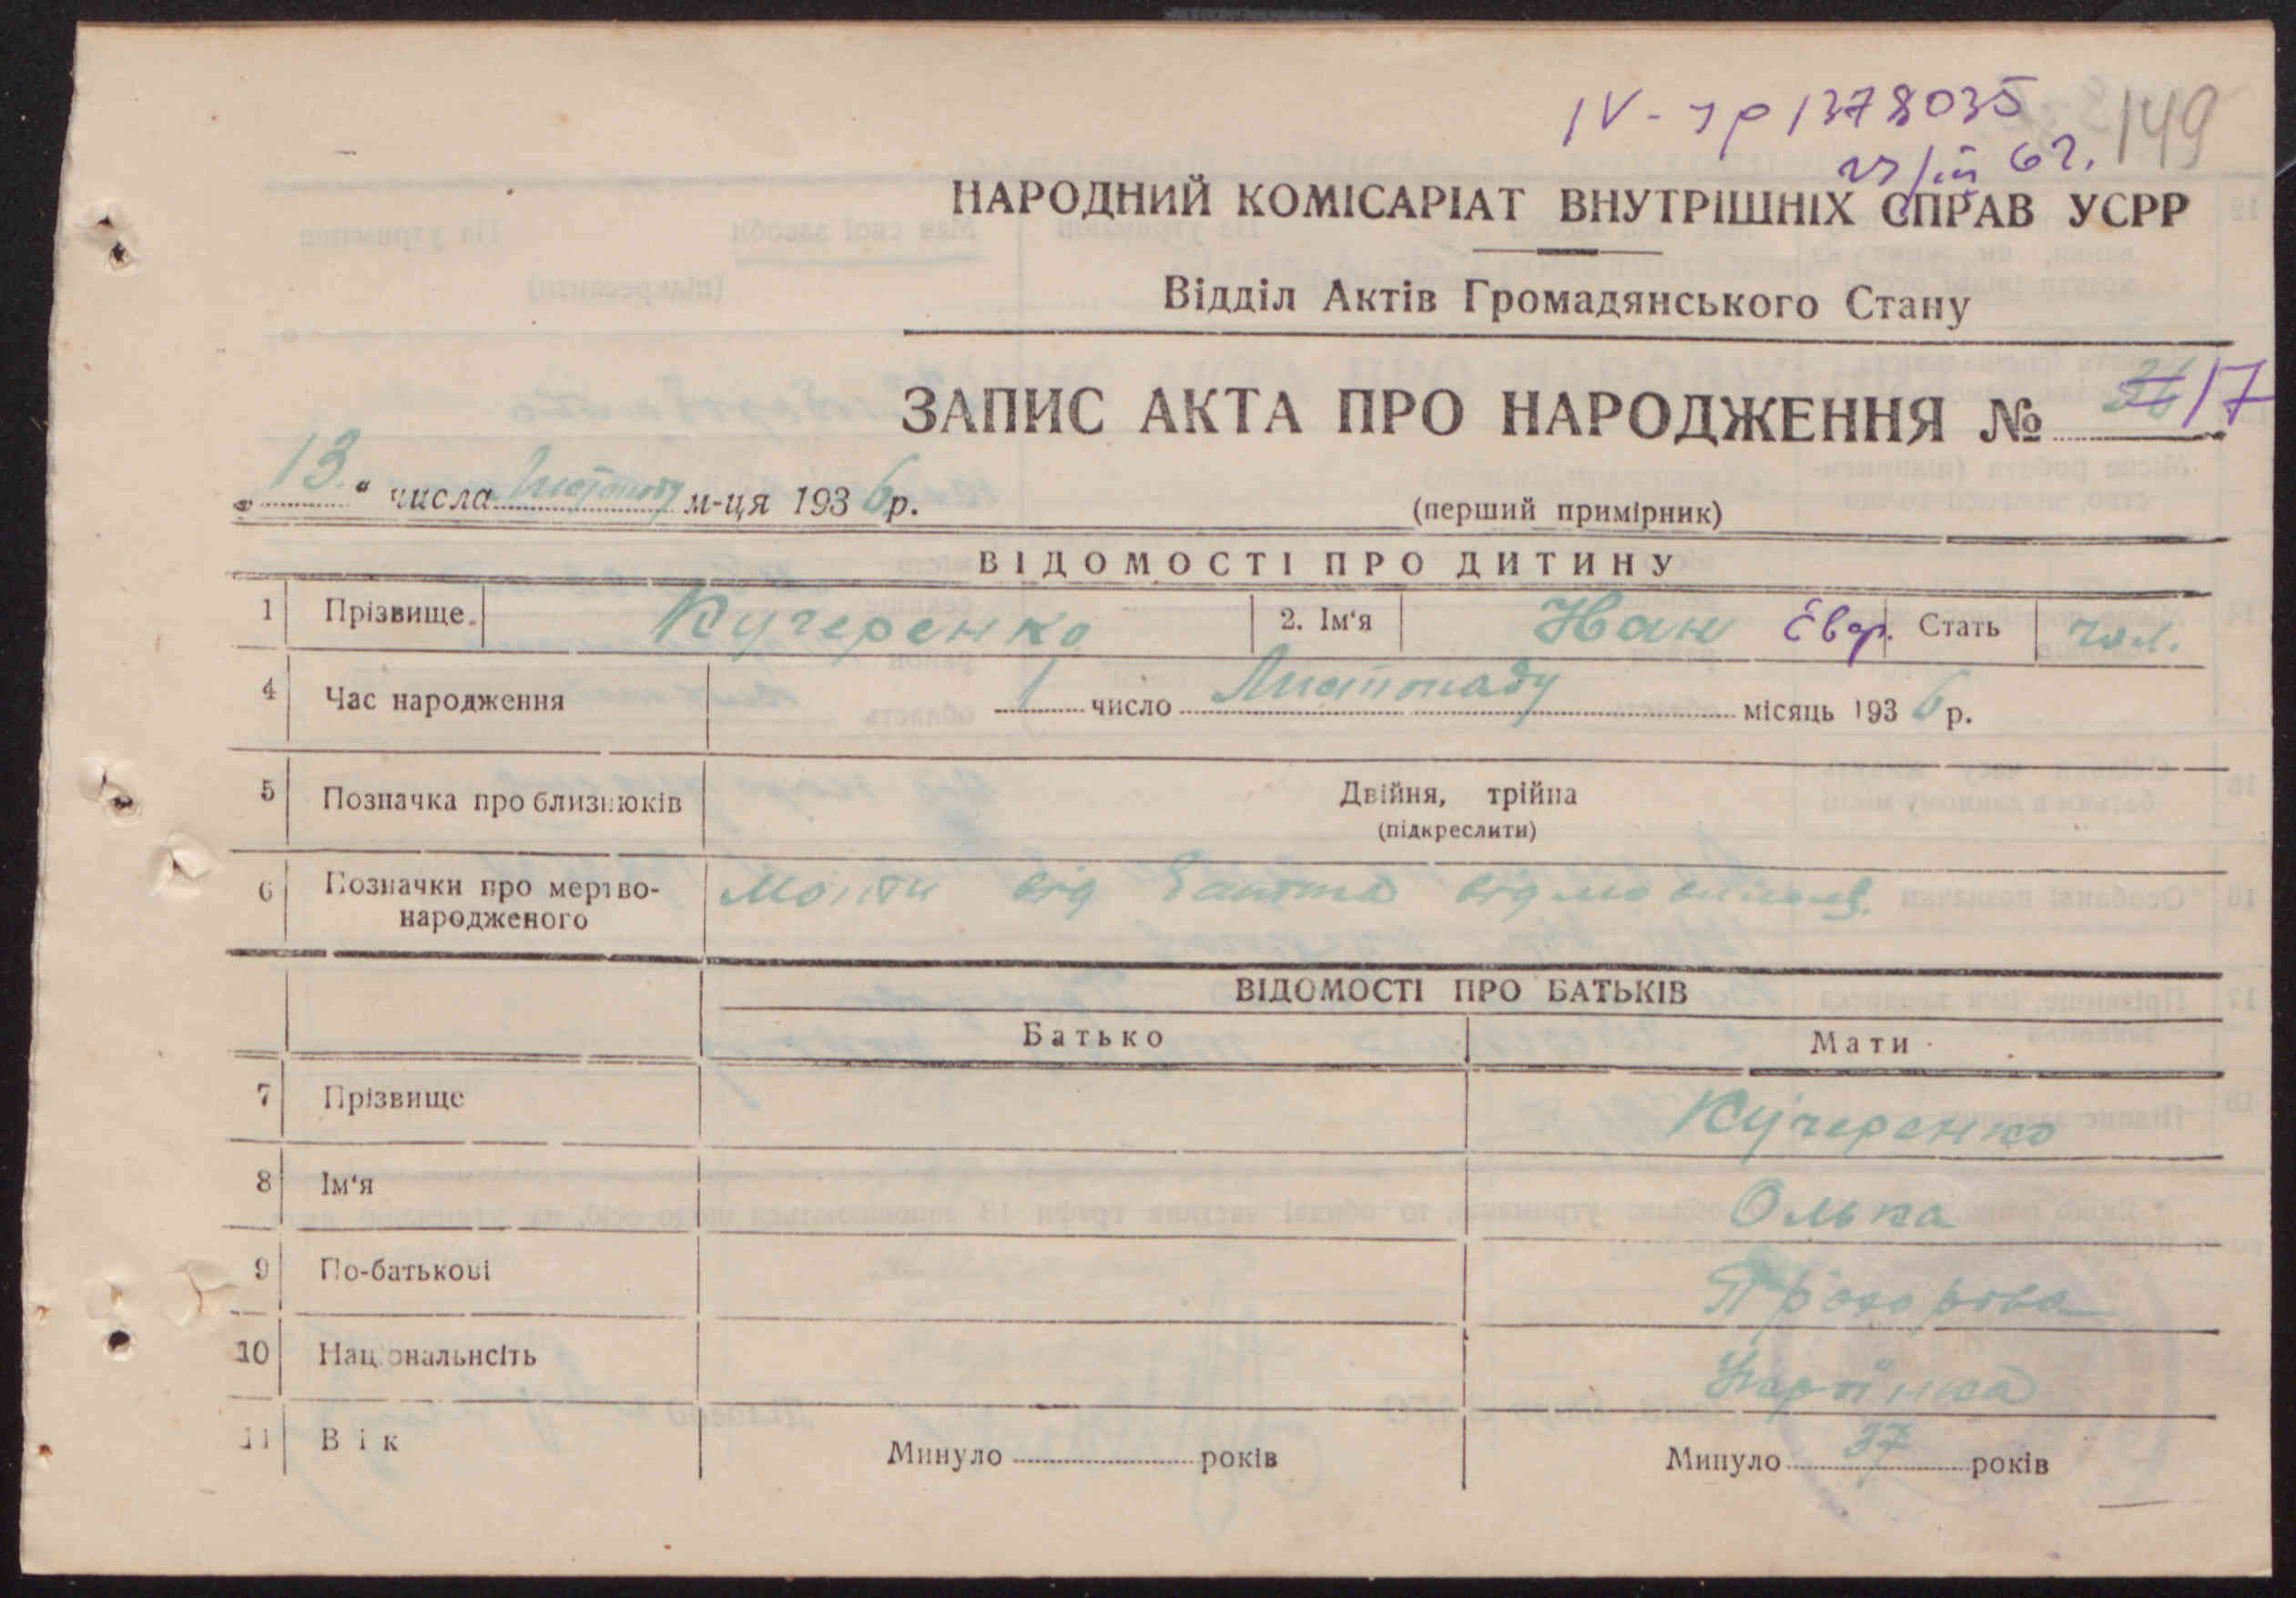 IV-ур 1378035
149
23/III 62.
НАРОДНИЙ КОМІСАРІАТ ВНУТРІШНІХ СПРАВ УСРР
Відділ Актів Громадянського Стану
ЗАПИС АКТА ПРО НАРОДЖЕННЯ № 36 17
„ 13. “ числа Листопаду м-ця 1936 р.
(перший примірник)
ВІДОМОСТІ ПРО ДИТИНУ
1 Прізвище. Кучеренко 2. Ім'я Иван Евг. Стать чол.
4 Час народження 1 число Листопаду місяць 1936 р.
5 Позначка про близнюків Двійня, трійна
(підкреслити)
6 Позначки про мертво-
народженого Мати від
ВІДОМОСТІ ПРО БАТЬКІВ
Батько Мати
7 Прізвище Кучеренко
8 Ім'я Ольга
9 По-батькові Прохорова
10 Національнсіть Україінка
11 Вік Минуло років Минуло 37 років